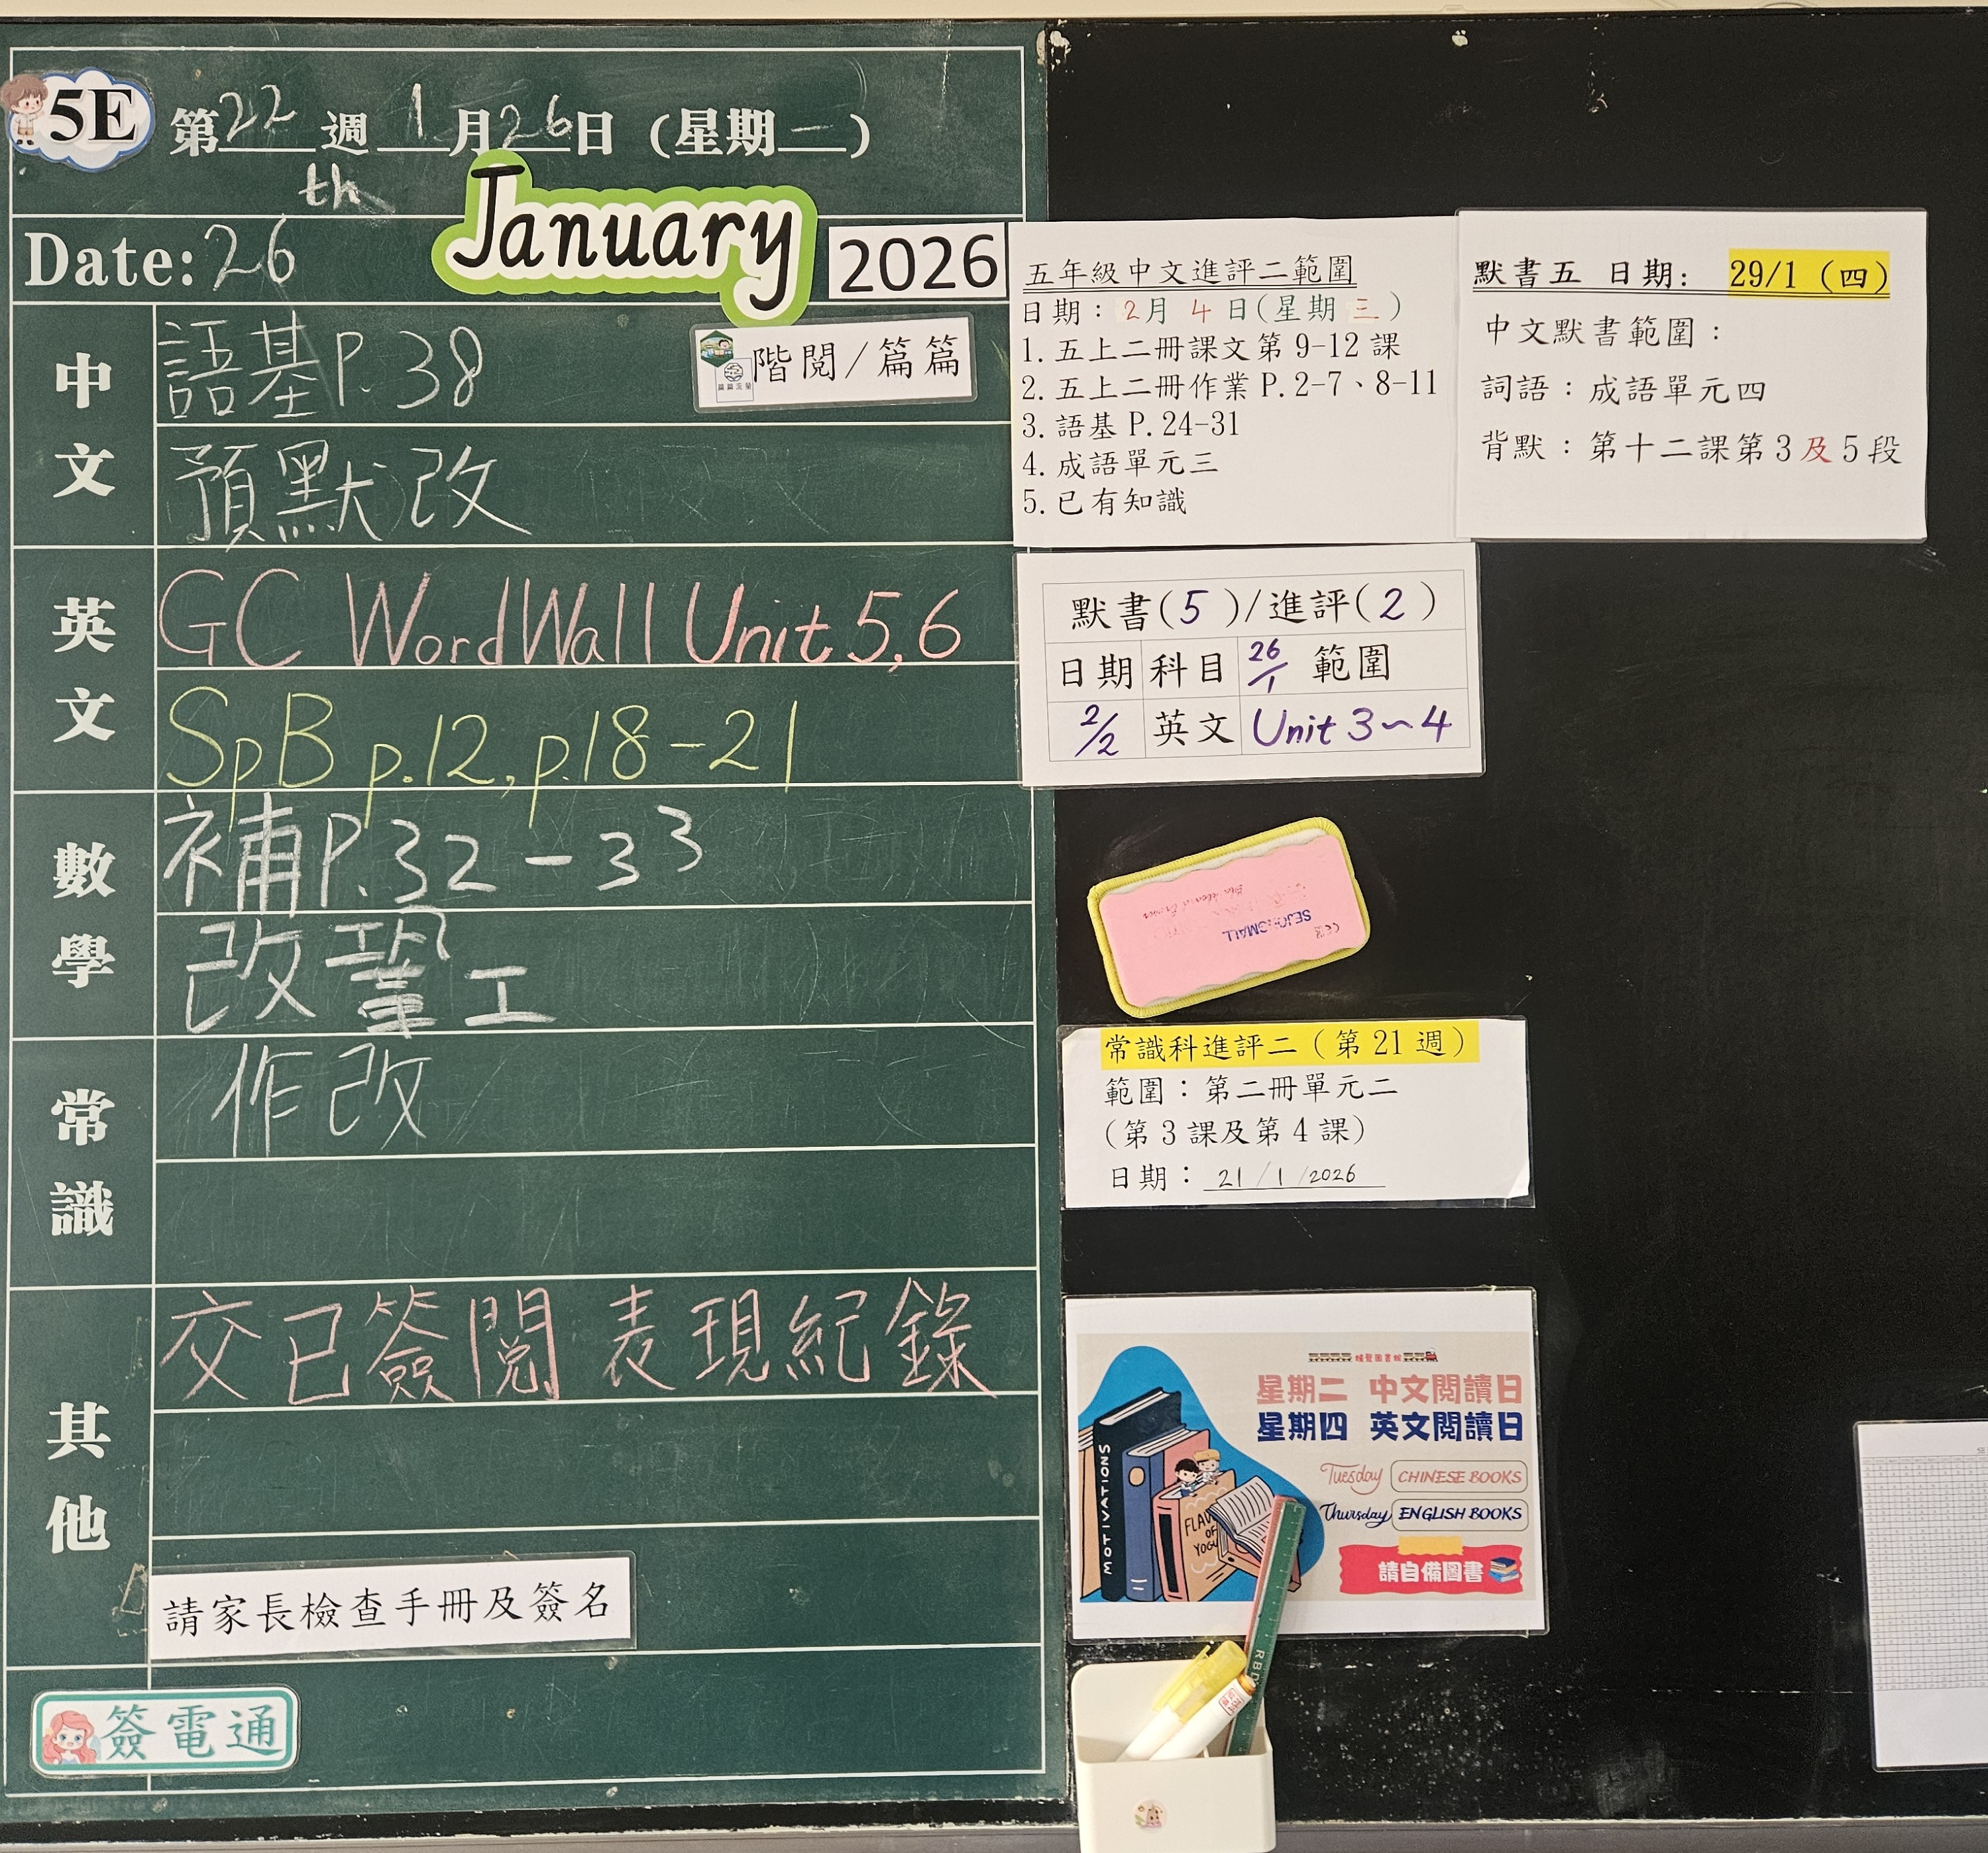 5E
第22週 1月26日（星期一）
th
Date: 26 January 2026
中文
語基P.38
階閱/篇篇
預默改
英文
GC WordWall Unit 5,6
SpB p.12, p.18-21
數學
補P.32-33
改
工
常識
作改
其他
交已簽閱表現紀錄
請家長檢查手冊及簽名
簽電通
五年級中文進評二範圍
日期：2月 4 日(星期 三 )
1. 五上二冊課文第 9-12 課
2. 五上二冊作業 P.2-7、8-11
3. 語基 P.24-31
4. 成語單元三
5. 已有知識
默書五 日期： 29/1（四）
中文默書範圍：
詞語：成語單元四
背默：第十二課第 3 及 5 段
默書(5)/進評(2)
日期 科目 26/1 範圍
2/2 英文 Unit 3~4
SEJONGMALL
常識科進評二（第 21 週）
範圍：第二冊單元二
（第 3 課及第 4 課）
日期：21/1/2026
星期二 中文閱讀日
星期四 英文閱讀日
Tuesday CHINESE BOOKS
Thursday ENGLISH BOOKS
請自備圖書
MOTIVATIONS